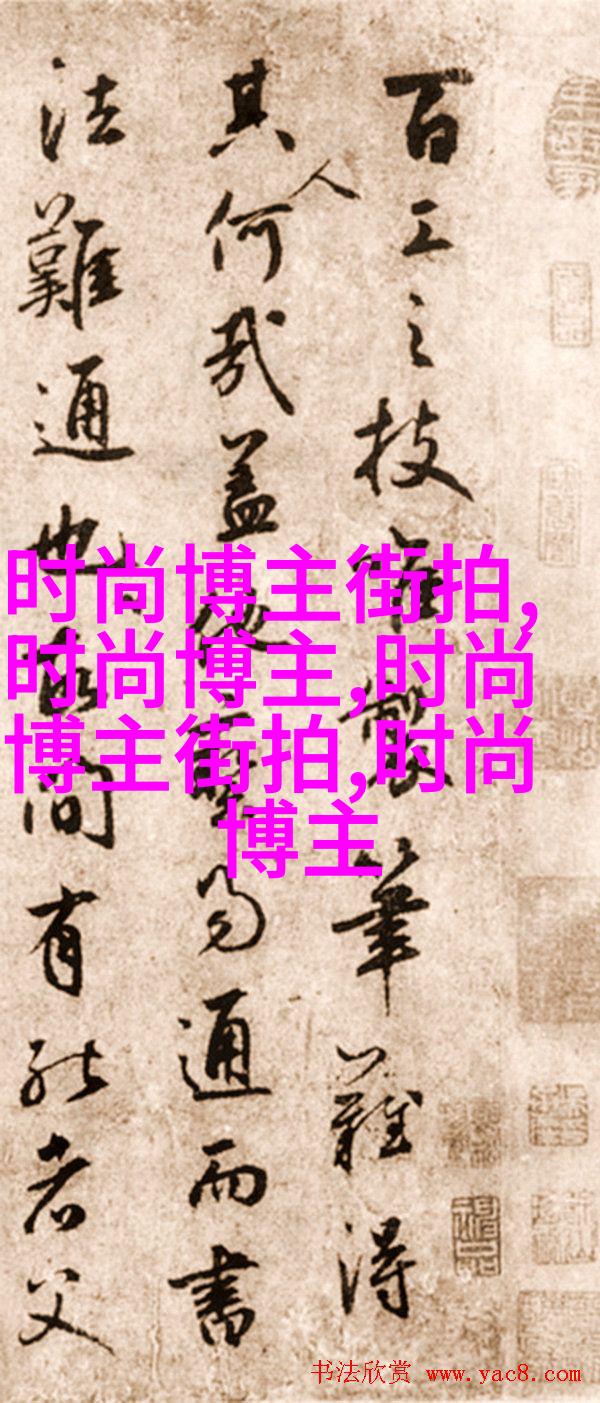 百工之技唯製筆難得
其人何哉蓋後通而書
法難通也故間有能者父
时尚博主街拍,
时尚博主,时尚
博主街拍,时尚
博主
书法欣赏 www.yac8.com